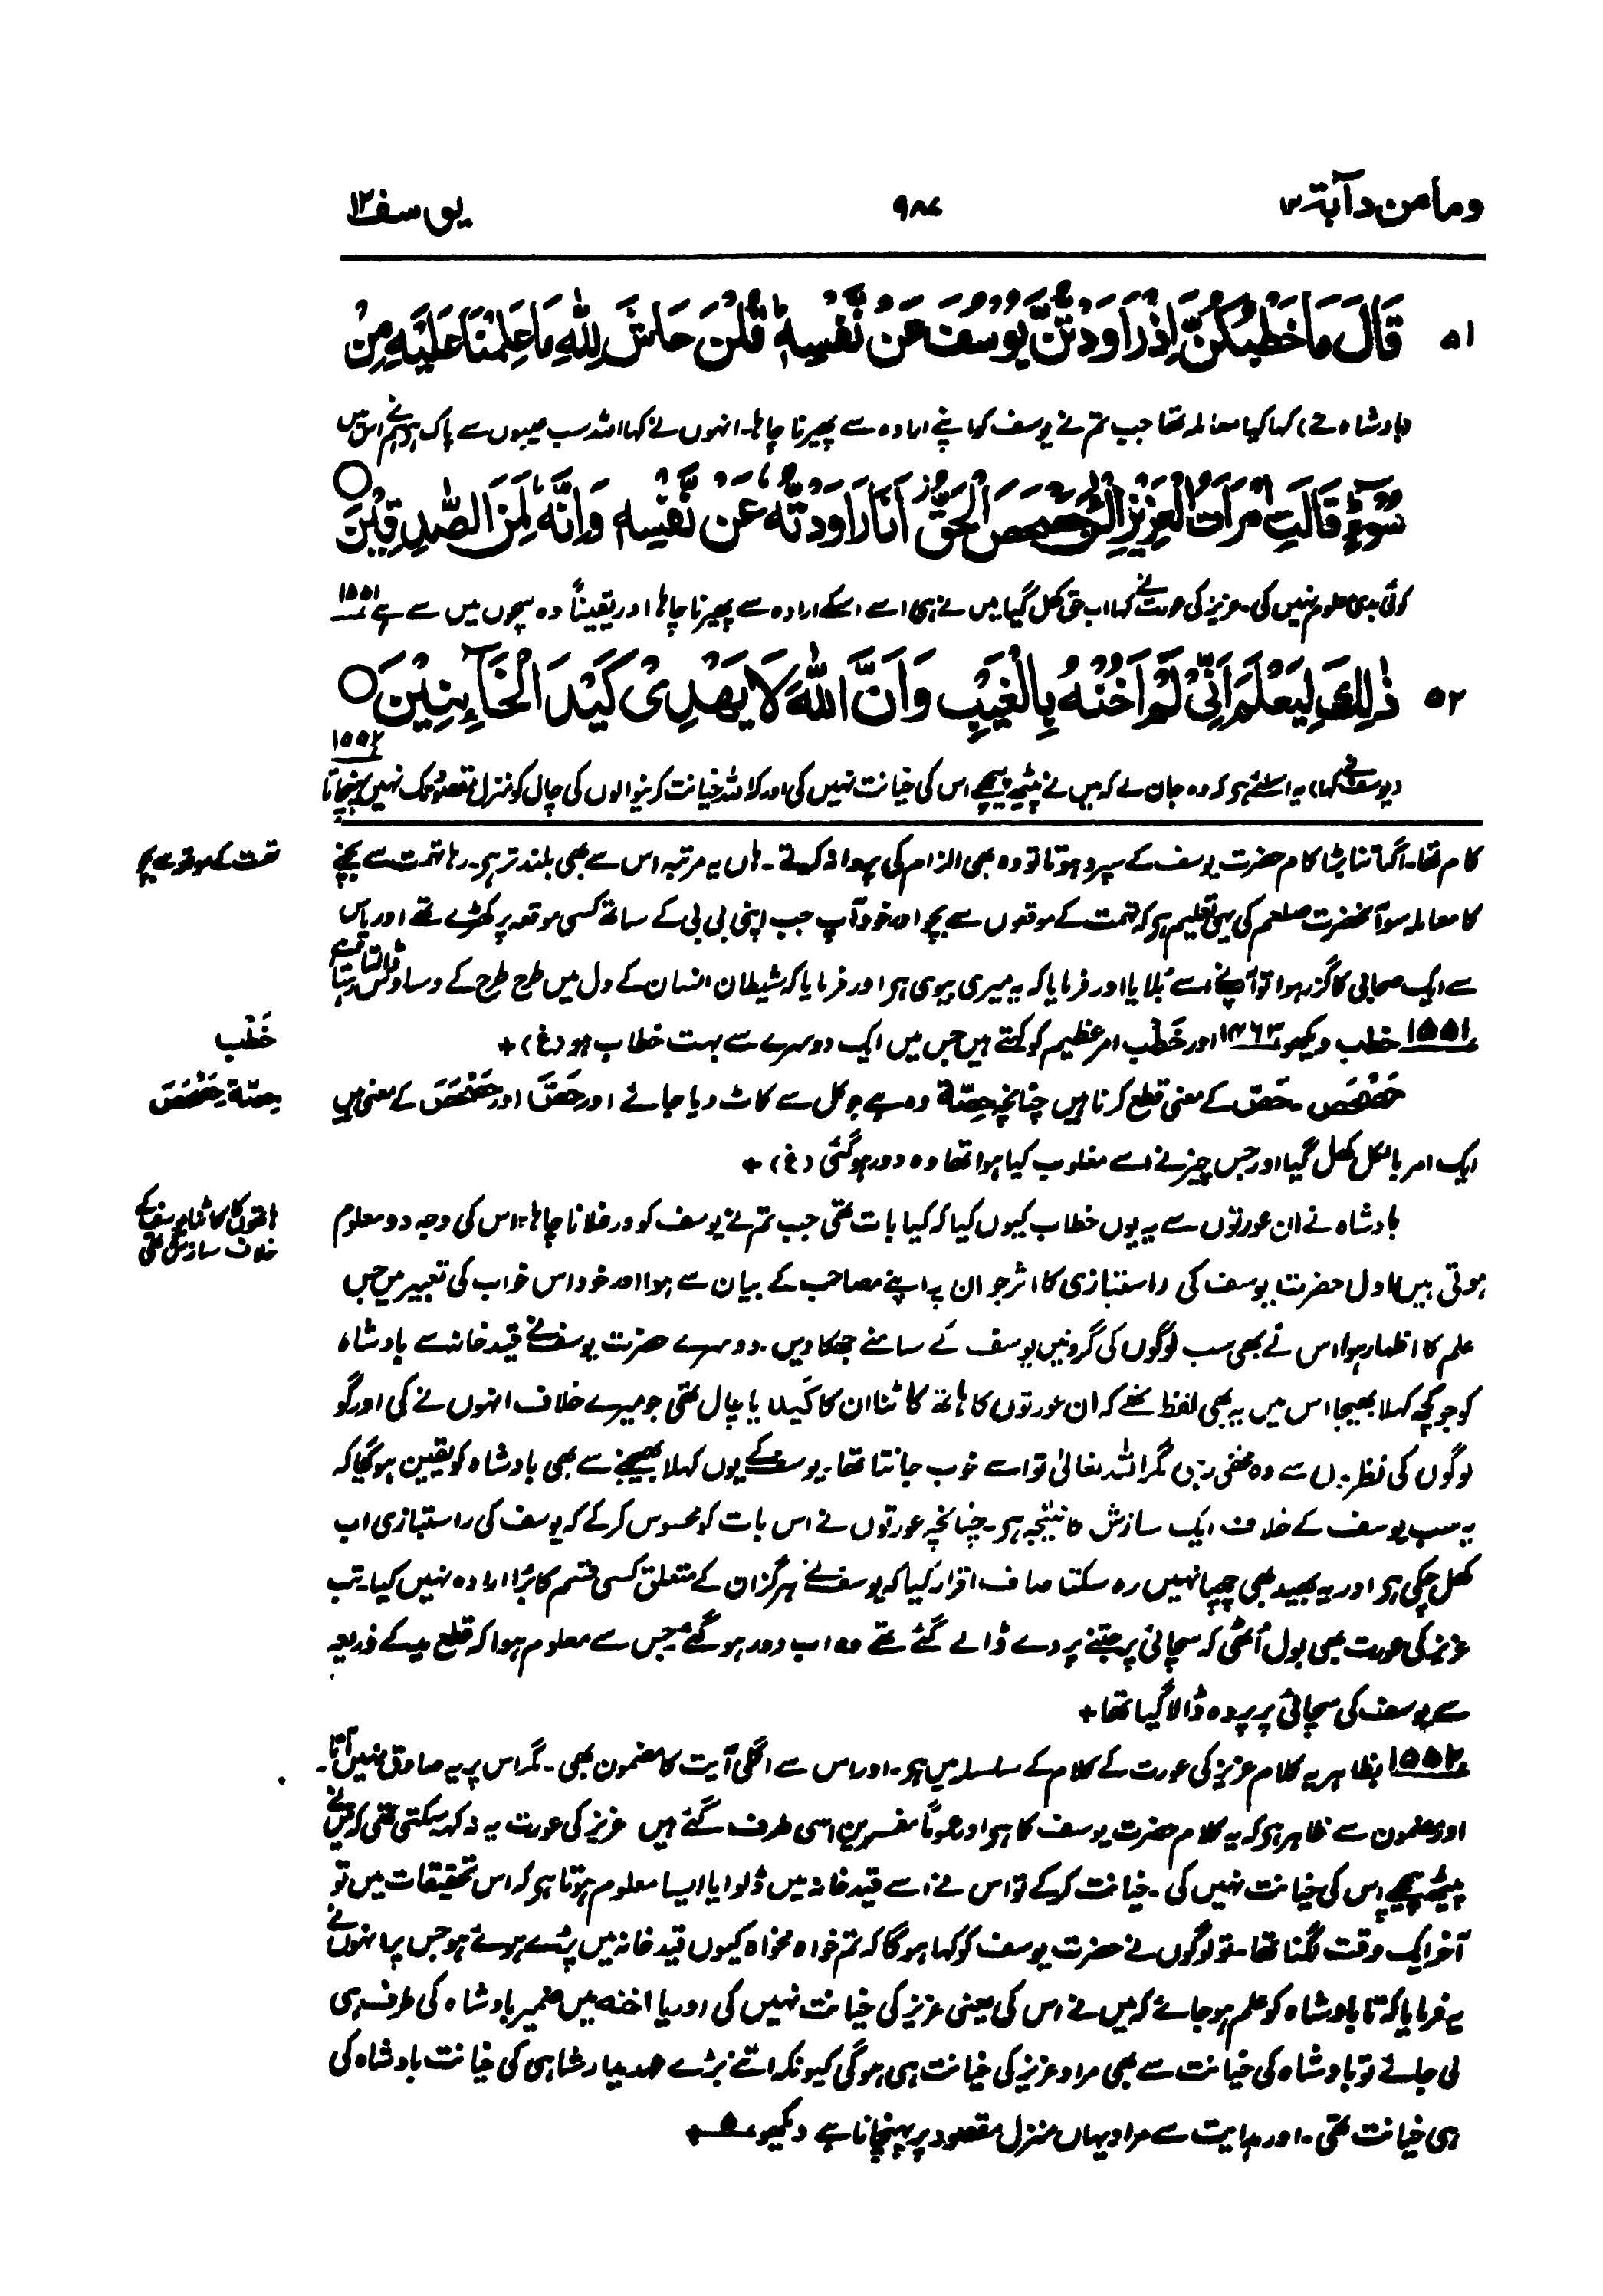 ومامن دآبة ١٢
٩٨٧
يوسف ١٢
٥١ قَالَ مَا خَطْبُكُنَّ اِذْ رَاوَدْتُّنَّ يُوْسُفَ عَنْ نَّفْسِهٖ ؕ قُلْنَ حَاشَ لِلّٰهِ مَا عَلِمْنَا عَلَيْهِ مِنْ
(بادشاہ نے) کہا کیا معاملہ تھا جب تم نے یوسف کو اپنے ارادہ سے پھیرنا چاہا۔ انہوں نے کہا اللہ سب عیبوں سے پاک ہے ہم نے اس میں
سُوْٓءٍ ؕ قَالَتِ امْرَاَتُ الْعَزِيْزِ الْـٰٔنَ حَصْحَصَ الْحَقُّ ز اَنَا رَاوَدْتُّهٗ عَنْ نَّفْسِهٖ وَاِنَّهٗ لَمِنَ الصّٰدِقِيْنَ ○
کوئی بدی معلوم نہیں کی۔ عزیز کی عورت نے کہا اب حق کھل گیا میں نے ہی اسے اسکے ارادہ سے پھیرنا چاہا اور یقیناً وہ سچوں میں سے ہے ١٥٥١
٥٢ ذٰلِكَ لِيَعْلَمَ اَنِّيْ لَمْ اَخُنْهُ بِالْغَيْبِ وَاَنَّ اللّٰهَ لَا يَهْدِيْ كَيْدَ الْخَآئِنِيْنَ ○
١٥٥٢
(یوسف نے کہا) یہ اسلئے ہو کہ وہ جان لے کہ میں نے پیٹھ پیچھے اس کی خیانت نہیں کی اور کہ اللہ خیانت کرنیوالوں کی چال کو منزل مقصود تک نہیں پہنچاتا
کام تھا۔ اگر اتنا بڑا کام حضرت یوسف کے سپرد ہوتا تو وہ بھی الزام کی پروا نہ کرتے۔ ہاں یہ مرتبہ اس سے بھی بلند تر ہو۔ رہا تہمت سے بچنے
تہمت کے موقعہ سے بچو
کا معاملہ سو آنحضرت صلعم کی یہی تعلیم ہو کہ تہمت کے موقعوں سے بچو اور خود آپ جب اپنی بی بی کے ساتھ کسی موقعہ پر کھڑے تھے اور پاس
سے ایک صحابی کا گزر ہوا تو آپ نے اسے بلایا اور فرمایا کہ یہ میری بیوی ہو اور فرمایا کہ شیطان انسان کے دل میں طرح طرح کے وساوس ڈالتا رہتا
١٥٥١ خطب دیکھو ١٢٦٣ اور خَطْب امر عظیم کو کہتے ہیں جس میں ایک دوسرے سے بہت خطاب ہو (غ) +
خَطْب
حَصْحَصَ۔ حَصّ کے معنی قطع کرنا ہیں چنانچہ حِصّة وہ ہے جو کل سے کاٹ دیا جائے اور حَصَّ اور حَصْحَصَ کے معنی ہیں
حِصّة حَصْحَصَ
ایک امر بالکل کھل گیا اور جس چیز نے اسے مغلوب کیا ہوا تھا وہ دور ہو گئی (غ) +
بادشاہ نے ان عورتوں سے یہ یوں خطاب کیوں کیا کہ کیا بات تھی جب تم نے یوسف کو ورغلانا چاہا؟ اس کی وجہ دو معلوم
ہاتھوں کا کاٹنا یوسف کے
خلاف سازش تھی
ہوتی ہیں اول حضرت یوسف کی راستبازی کا اثر جو ان پر اپنے مصاحب کے بیان سے ہوا اور خود اس خواب کی تعبیر میں جس
علم کا اظہار ہوا اس نے بھی سب لوگوں کی گردنیں یوسف کے سامنے جھکا دیں۔ دوسرے حضرت یوسف نے قید خانہ سے بادشاہ
کو جو کچھ کہلا بھیجا اس میں یہ بھی لفظ تھے کہ ان عورتوں کا ہاتھ کاٹنا ان کا کید یا چال تھی جو میرے خلاف انہوں نے کی اور گو
لوگوں کی نظروں سے وہ مخفی رہی مگر اللہ تعالیٰ تو اسے خوب جانتا تھا۔ یوسف کے یوں کہلا بھیجنے سے بھی بادشاہ کو یقین ہو گیا کہ
یہ سب یوسف کے خلاف ایک سازش کا نتیجہ ہو۔ چنانچہ عورتوں نے اس بات کو محسوس کر کے کہ یوسف کی راستبازی اب
کھل چکی ہو اور یہ بھید بھی چھپا نہیں رہ سکتا صاف اقرار کیا کہ یوسف نے ہرگز ان کے متعلق کسی قسم کا بُرا ارادہ نہیں کیا۔ تب
عزیز کی عورت بھی بول اُٹھی کہ سچائی پر جتنے پردے ڈالے گئے تھے وہ اب دور ہو گئے جس سے معلوم ہوا کہ قطع ید کے ذریعہ
سے یوسف کی سچائی پر پردہ ڈالا گیا تھا +
١٥٥٢ بظاہر یہ کلام عزیز کی عورت کے کلام کے سلسلہ میں ہو۔ اور اس سے اگلی آیت کا مضمون بھی۔ مگر اس پر یہ صادق نہیں آتا۔
اور مضمون سے ظاہر ہو کہ یہ کلام حضرت یوسف کا ہو اور عموماً مفسرین اسی طرف گئے ہیں عزیز کی عورت یہ نہ کہہ سکتی تھی کہ میں نے
پیٹھ پیچھے اس کی خیانت نہیں کی۔ خیانت کر کے تو اس نے اسے قید خانہ میں ڈلوایا ایسا معلوم ہوتا ہو کہ اس تحقیقات میں تو
آخر ایک وقت لگنا تھا۔ تو لوگوں نے حضرت یوسف کو کہا ہوگا کہ تم خواہ مخواہ کیوں قید خانہ میں پڑے ہوئے ہو جس پر انہوں نے
یہ فرمایا کہ تا بادشاہ کو علم ہو جائے کہ میں نے اس کی یعنی عزیز کی خیانت نہیں کی اور یا اخنه میں ضمیر بادشاہ کی طرف ہی
لی جائے تو بادشاہ کی خیانت سے بھی مراد عزیز کی خیانت ہی ہوگی کیونکہ اتنے بڑے عہدیدار شاہی کی خیانت بادشاہ کی
ہی خیانت تھی۔ اور ہدایت سے مراد یہاں منزل مقصود پر پہنچانا ہے دیکھو ٥ +